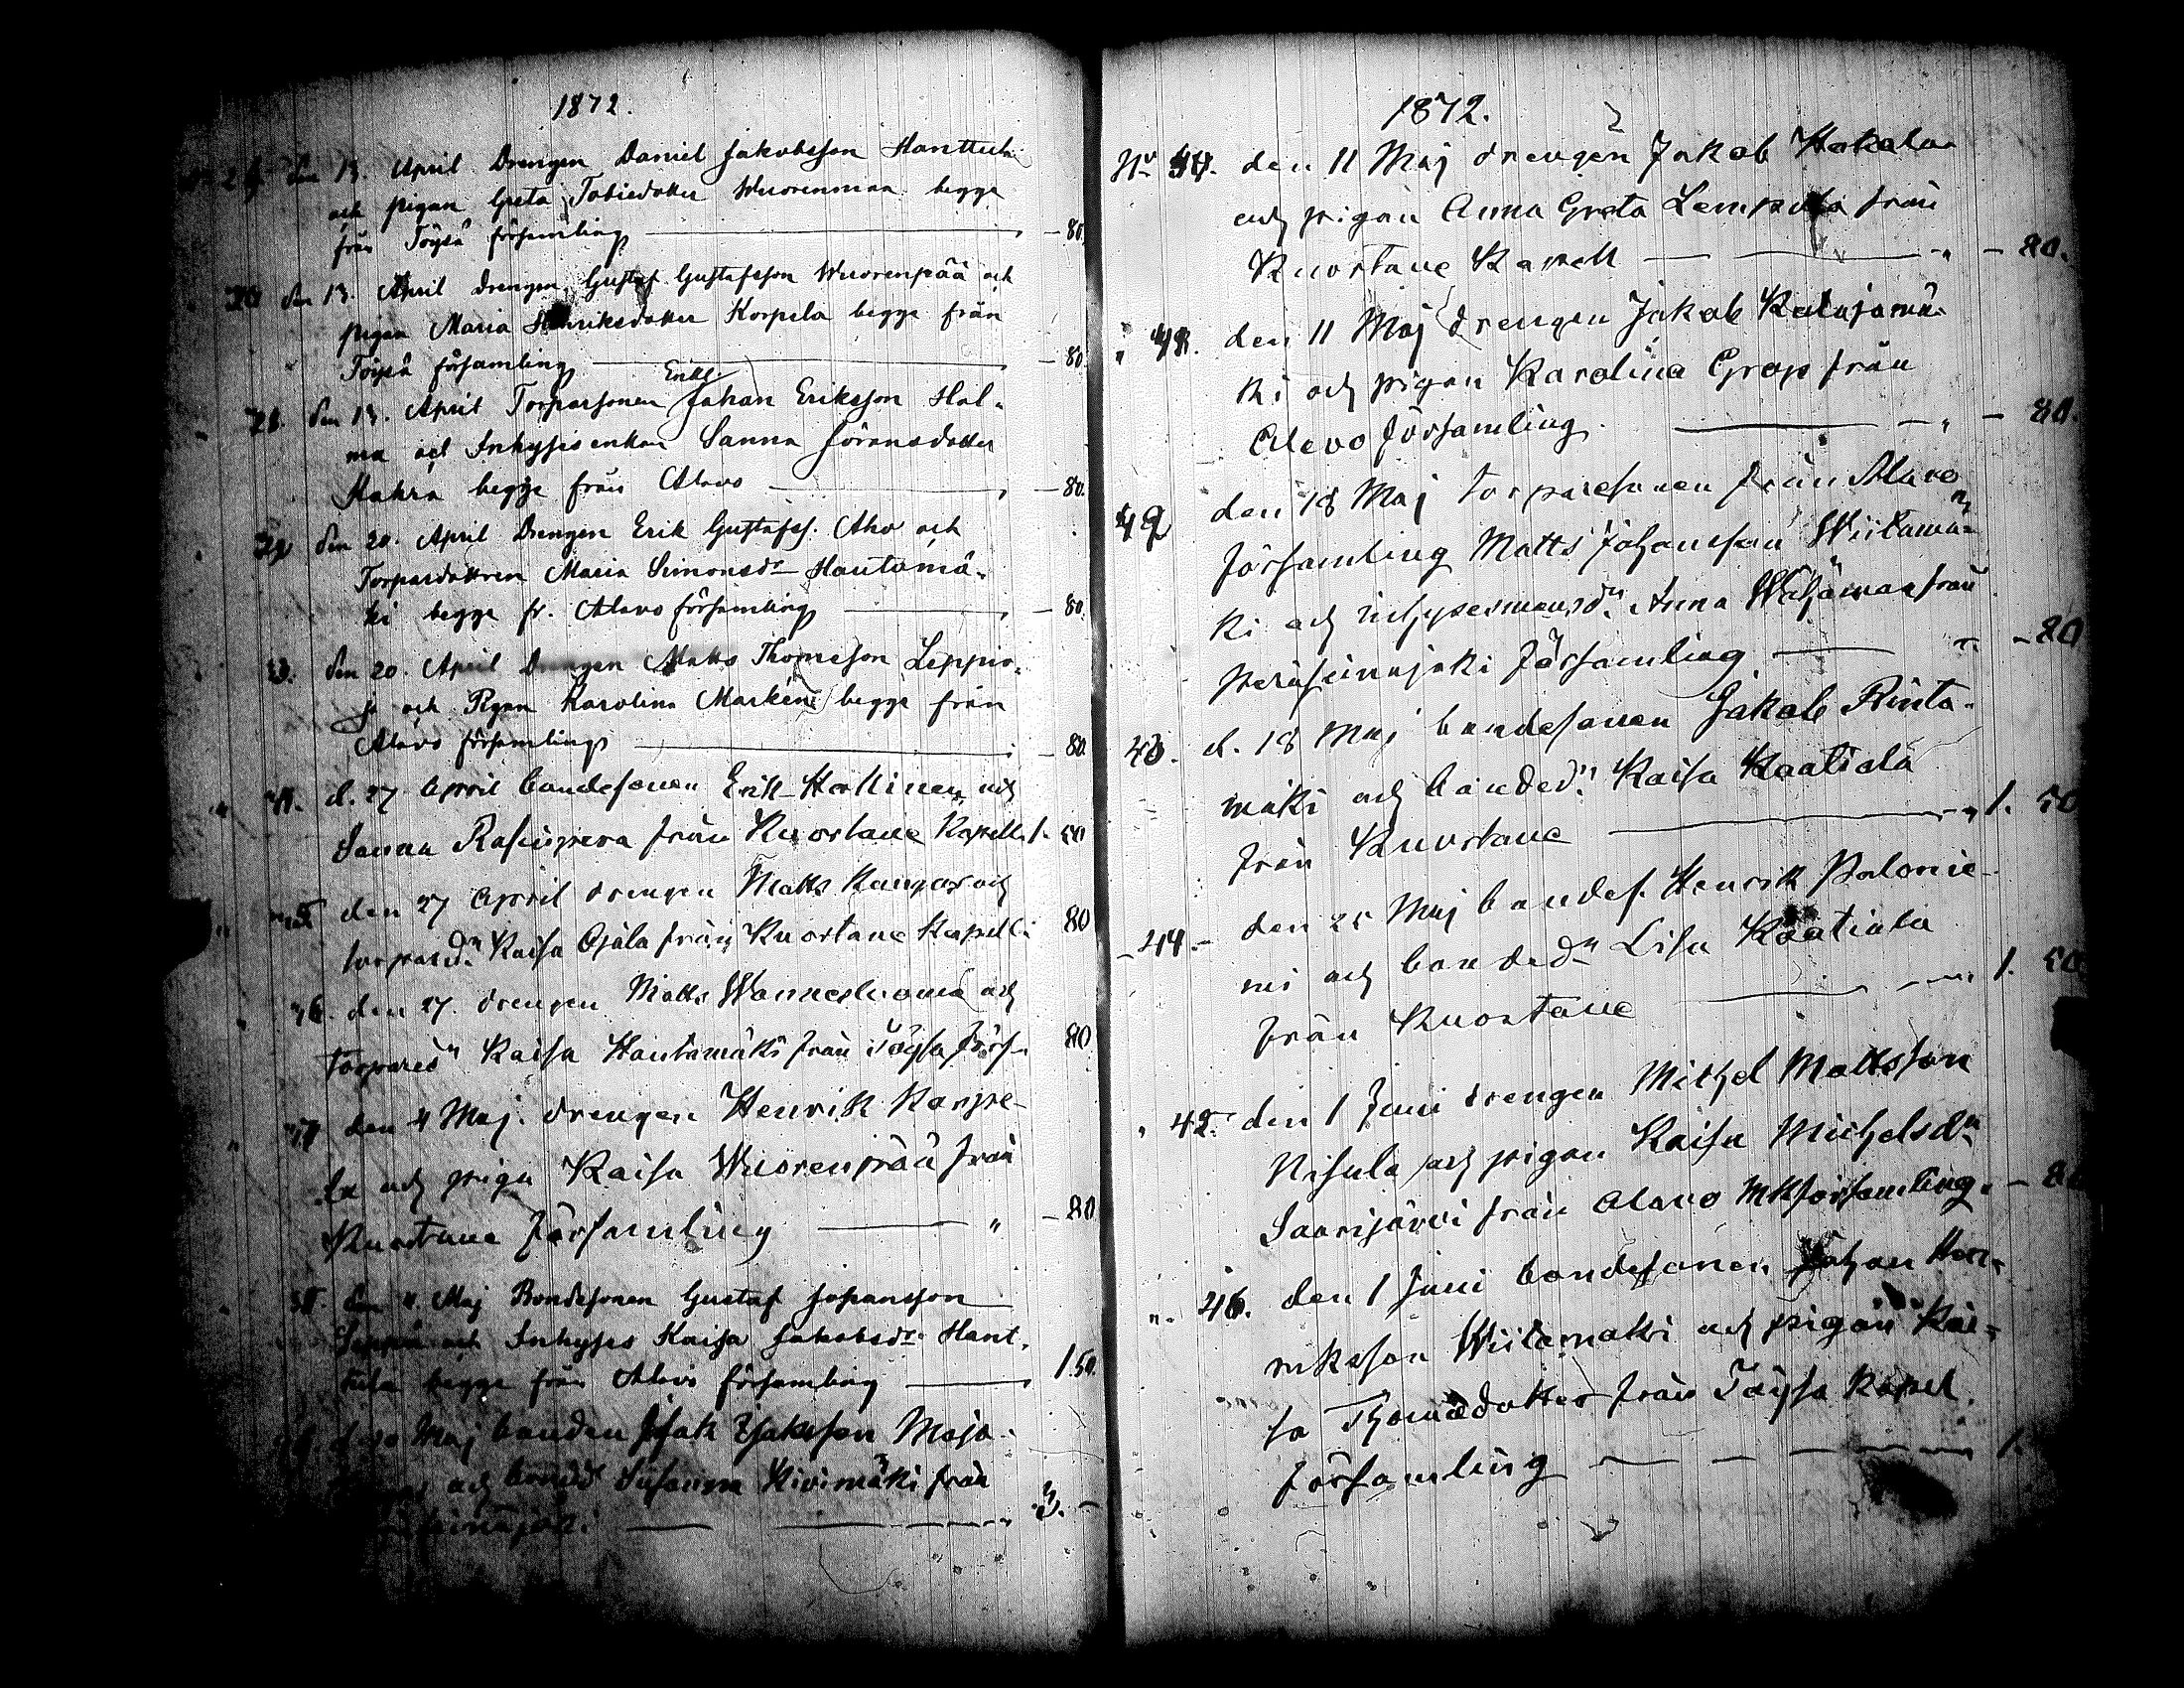 1872.
29 den 13. April Drengen Daniel Jakobsson Hanttula
och pigan Greta Tobiedotter Wuorenmaa begge
från Töysä församling — 80.
30 den 13. April drengen Gustaf Gustafsson Wuorenpää och
pigan Maria Henriksdotter Korpela begge från
Töysä församling — 80.
Enkl.
31. den 13. April Torparsonen Johan Eriksson Hal-
ma och Inhysesenkan Sanna Göransdotter
Hakra begge från Alavo — 80.
32 den 20. April Drengen Erik Gustafss. Aho och
Torpardottren Maria Simonsdr Hautamä-
ki begge fr. Alavo församling — 80.
33. den 20. April Drengen Matts Thomeson Leppio-
ja och Pigan Karolina Markéne begge från
Alavo församling — 80.
34. d. 27 April bondesonen Erik Herkinen och
Sanna Rasinpera från Kuortane Kapell 1. 50
35 den 27 April drengen Matts Kangas och
torpared:r Kaisa Ojala från Kuortane Kapell: 80
36. den 27. drengen Matts Wannesluoma och
torpared:r Kaisa Hautamäki från Töysa förs. 80
37 den 4 Maj. drengen Henrik Korpe-
la och piga Kaisa Wuorenpää från
Kuortane församling — " — 80
38. den 4. Maj Bondesonen Gustaf Johansson
och Inhyses Kaisa Jakobsdr Hant-
tula begge från Alavo församling — 1.50.
39. d. 10 Maj bonden Isak Isaksson Maja-
och bonded:r Susanna Kivimäki från
— 3. -
1872.
No 40. den 11 Maj drengen Jakob Hakala
och pigan Anna Greta Lempola från
Kuortane Kapell — " — 80.
" 41. den 11 Maj drengen Jakob Katajamä-
ki och pigan Karolina Grop från
Alavo församling. — " — 80.
42 den 18 Maj torparesonen från Alavo
församling Matts Johansson Wiitamä-
ki och inhysesmansd:r Anna Wäljämaa från
Peräseinäjoki församling — " — 80
43. d. 18 Maj bondesonen Jakob Rinta-
mäki och bonded:r Kaisa Kaatiala
från Kuortane — " 1. 50
44. den 25 Maj bondes. Henrik Palonie-
mi och bonded:r Lisa Kaatiala
från Kuortane — " 1. 50
" 45. den 1 Juni drengen Mikel Mattsson
Nisula och pigan Kaisa Mickelsd:r
Saarijärvi från Alavo Mkförsamling. — 80
" 46. den 1 Juni bondesonen Johan Hen-
riksson Wiitamäki och pigan Kai-
sa Thomædotter från Töysa Kapel
församling — 1.